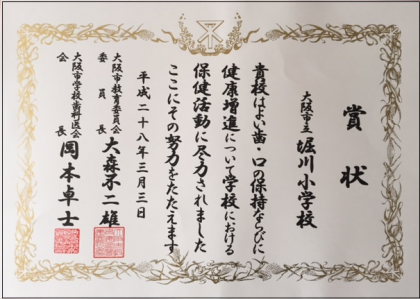 賞状
大阪市立 堀川小学校
貴校はよい歯・口の保持ならびに
健康増進について学校における
保健活動に尽力されました
ここにその努力をたたえます
平成二十八年三月三日
大阪市教育委員会
委員長 大森不二雄
大阪市学校歯科医会
会長 岡本卓士